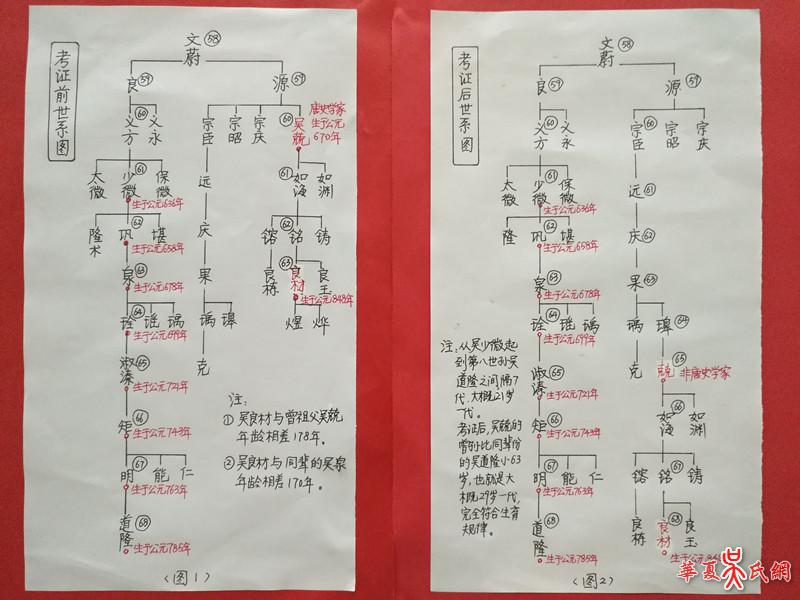 考证前世系图
文蔚 58
良 59
源 59
义方 60
义永
宗臣
宗昭
宗庆
60 吴兢
唐史学家
生于公元
670年
太微
少微 61
保微
生于公元636年
远
61 如海
如渊
隆术
巩 62
堪
生于公元658年
庆
镕
62 铭
铸
泉 63
生于公元678年
果
良栋
63 良材
良玉
生于公元848年
诠 64
瑶
瑀
生于公元699年
瑀
璋
煜
烨
淑溱 65
生于公元721年
克
矩 66
生于公元743年
明 67
能
仁
生于公元763年
道隆 68
生于公元785年
注:
① 吴良材与曾祖父吴兢
年龄相差178年。
② 吴良材与同辈的吴泉
年龄相差170年。
(图1)
考证后世系图
文蔚 58
良 59
源 59
义方 60
义永
宗臣 60
宗昭
宗庆
太微
少微 61
保微
生于公元636年
远 61
隆
巩 62
堪
生于公元658年
庆 62
泉 63
生于公元678年
果 63
诠 64
瑶
瑀
生于公元699年
瑀
璋 64
淑溱 65
生于公元721年
克
65 兢
非唐史学家
矩 66
生于公元743年
如海 66
如渊
明 67
能
仁
生于公元763年
镕
铭 67
铸
道隆 68
生于公元785年
良栋
良材 68
良玉
注:从吴少微起
到第八世孙吴
道隆之间隔7
代,大概21岁
一代。
考证后,吴兢的
曾孙比同辈份
的吴道隆小63
岁,也就是大
概29岁一代,
完全符合生育
规律。
(图2)
華夏吴氏網